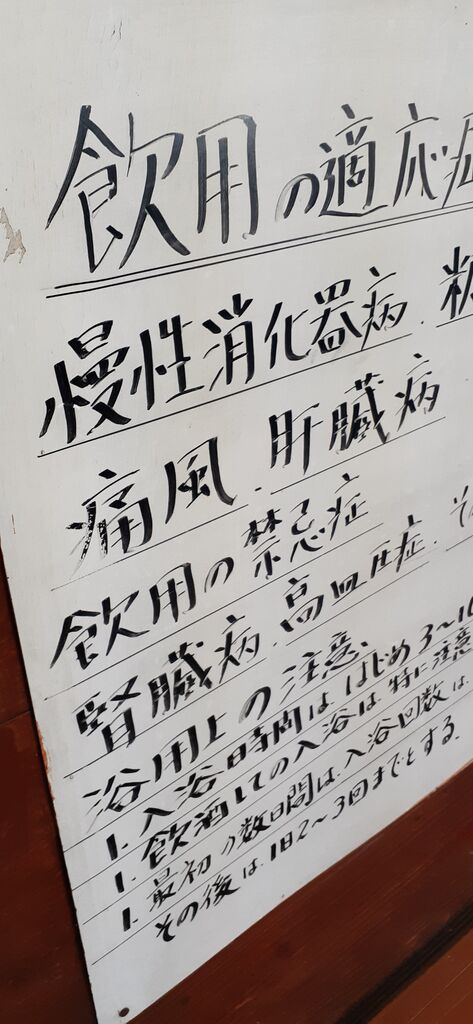 飲用の適応症
慢性消化器病.糖
痛風.肝臓病
飲用の禁忌症
腎臓病.高血圧症.その
浴用上の注意、
1.入浴時間は、はじめ3~10
1.飲酒しての入浴は特に注意
1.最初の数日間は、入浴回数は、
その後は、1日2~3回までとする.